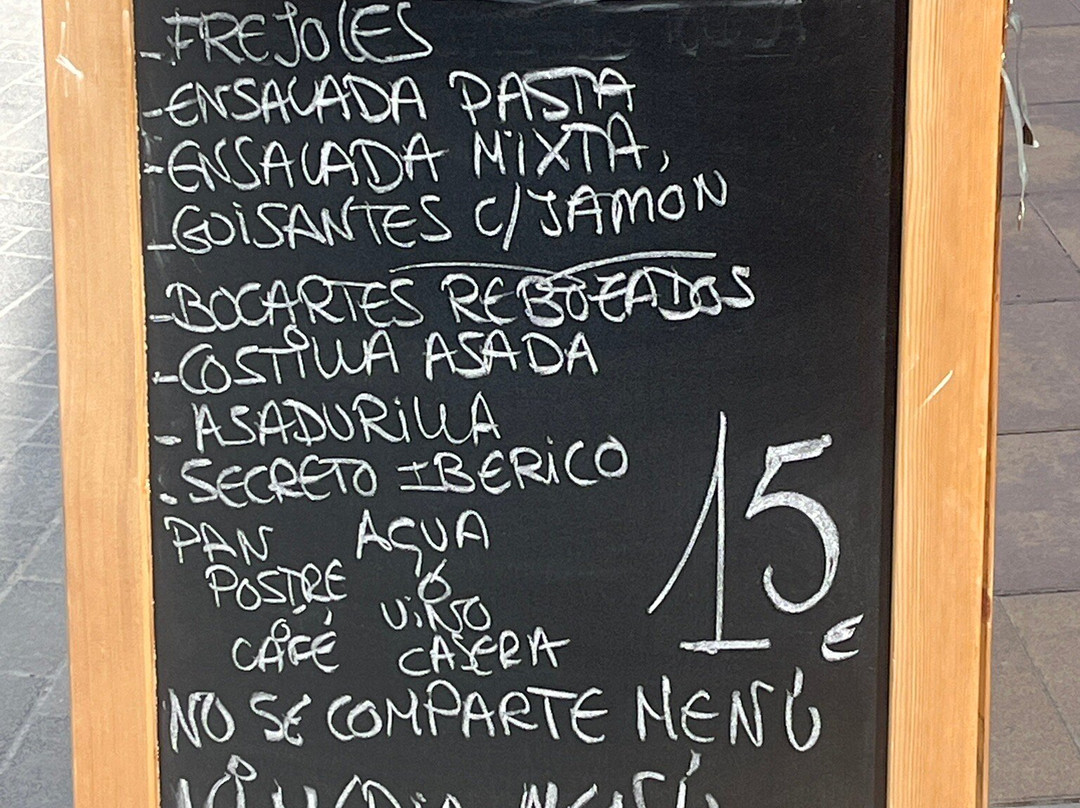 -FREJOLES
-ENSALADA PASTA
-ENSALADA MIXTA,
-GUISANTES C/JAMON
-BOCARTES REBOZADOS
-COSTILLA ASADA
-ASADURILLA
.SECRETO IBERICO
PAN AGUA
POSTRE Ó
CAFÉ VINO
CASERA
15€
NO SE COMPARTE MENÚ
NI MEDIO MENÚ